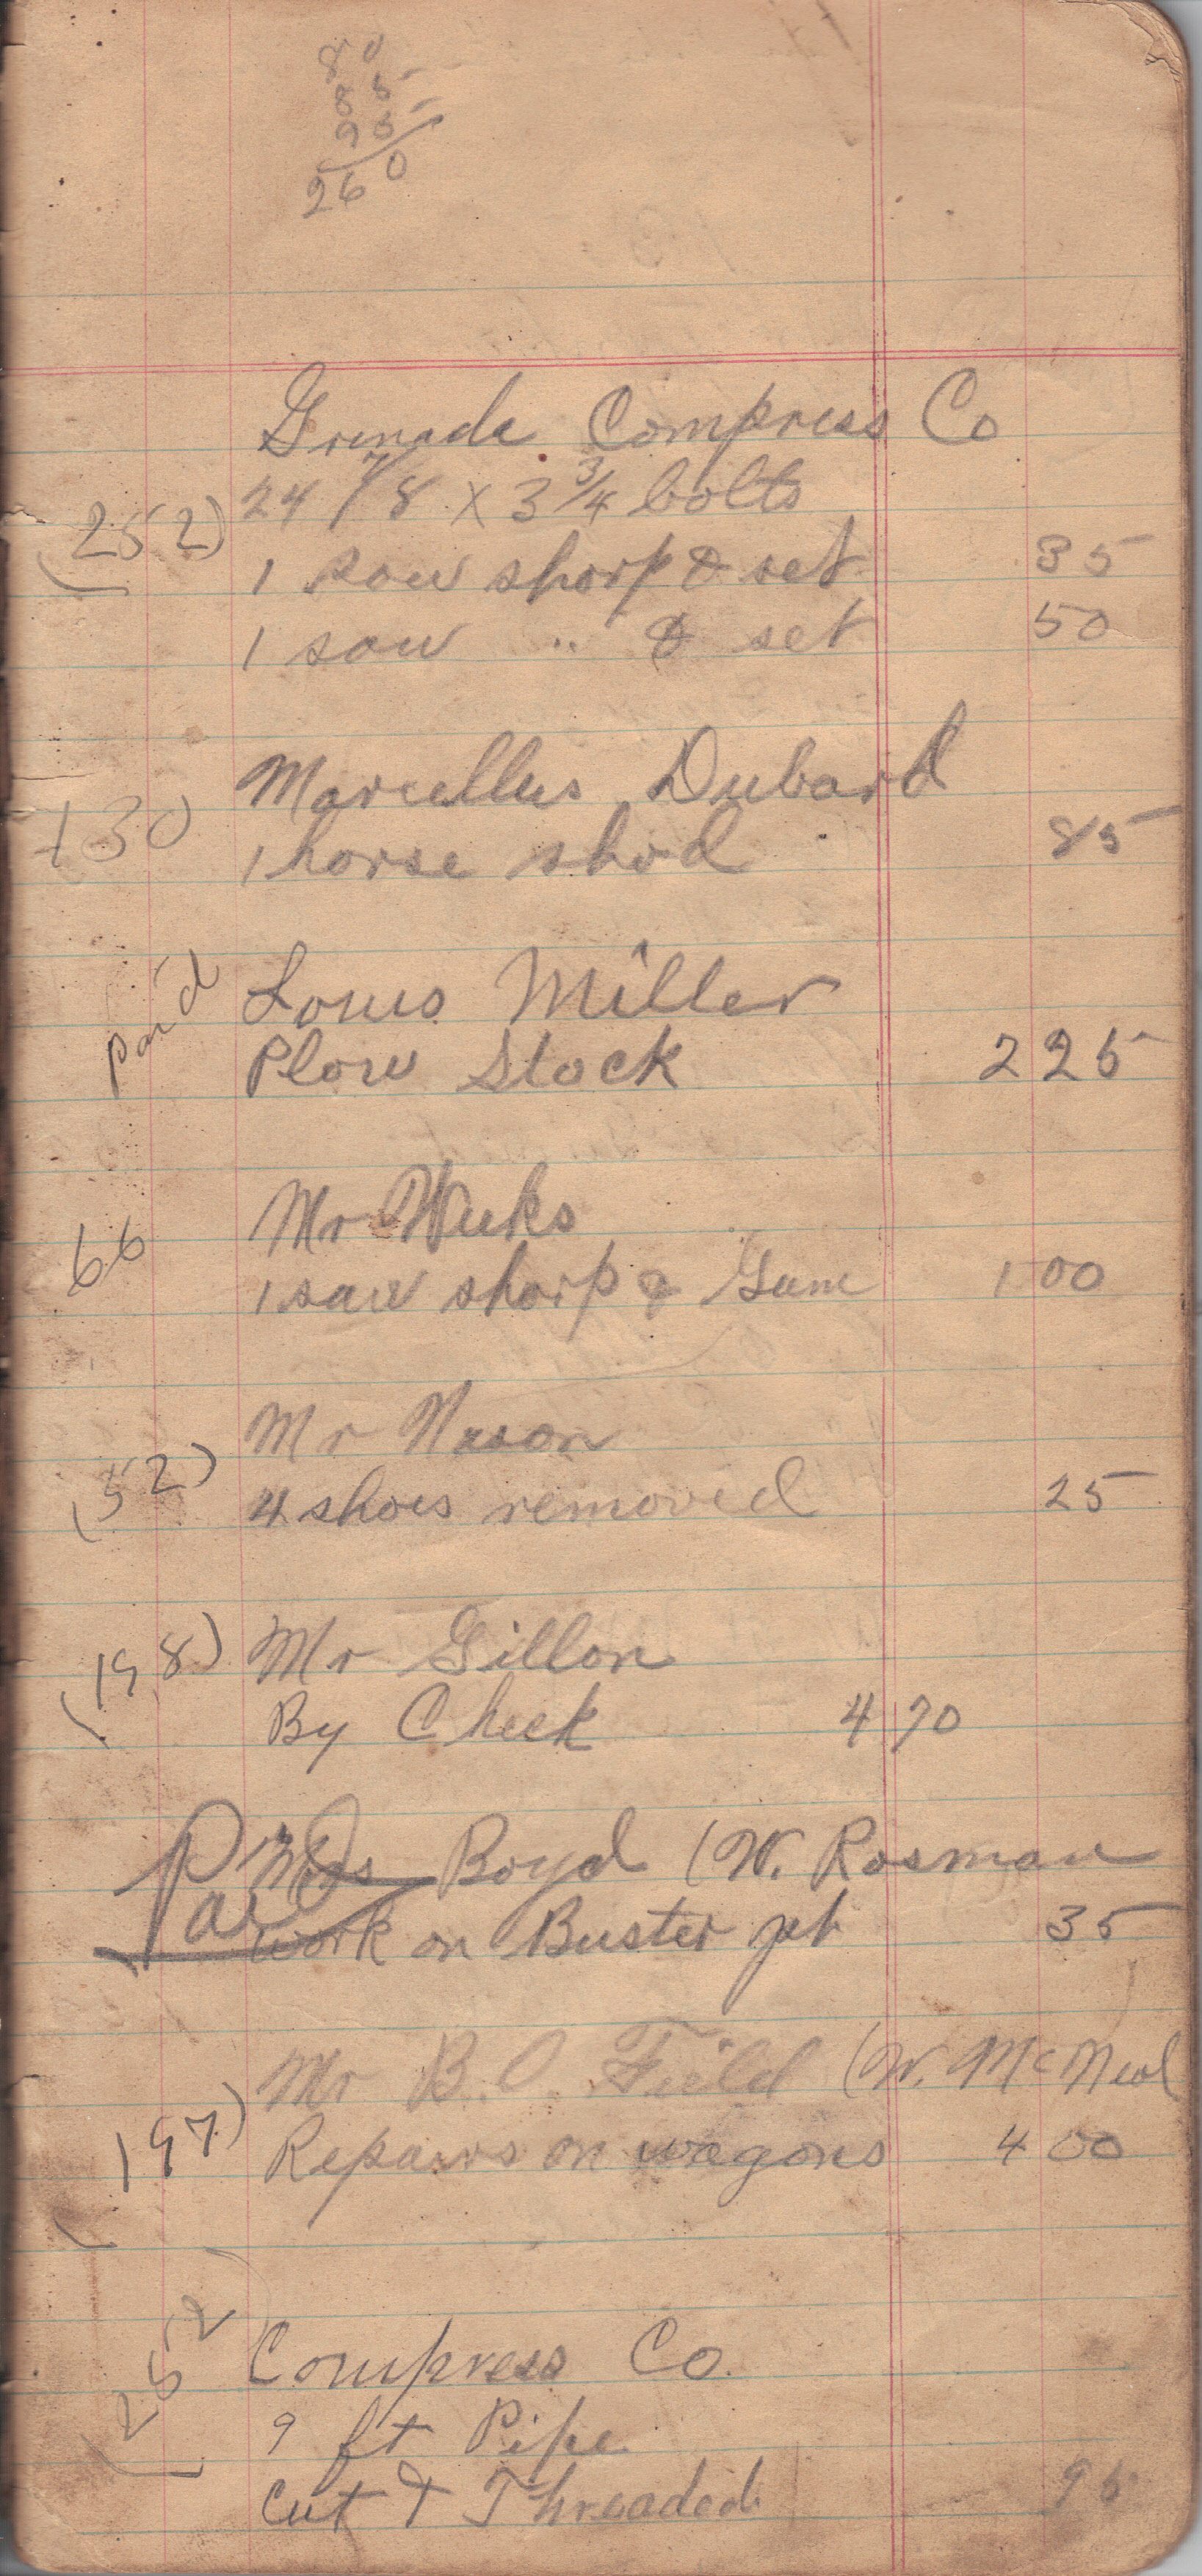 80
85
95
260
Grenada Compress Co
24 7/8 x 3 3/4 bolts
(252)
1 saw sharp & set 35
1 saw " & set 50
Marcellus Dubard
130
1 horse shod 85
Paid
Louis Miller
Plow Stock 2 25
Mr Weeks
66
1 saw sharp & Gum 1 00
Mr Nason
(52)
4 shoes removed 25
(198) Mr Gillon
By Check 4 70
Paid
Mrs Boyd (W. Rosman
work on Buster pt 35
Mr B. O. Field (W. McNeal
(197)
Repairs on wagons 4 00
(252)
Compress Co.
9 ft Pipe
Cut & Threaded 95